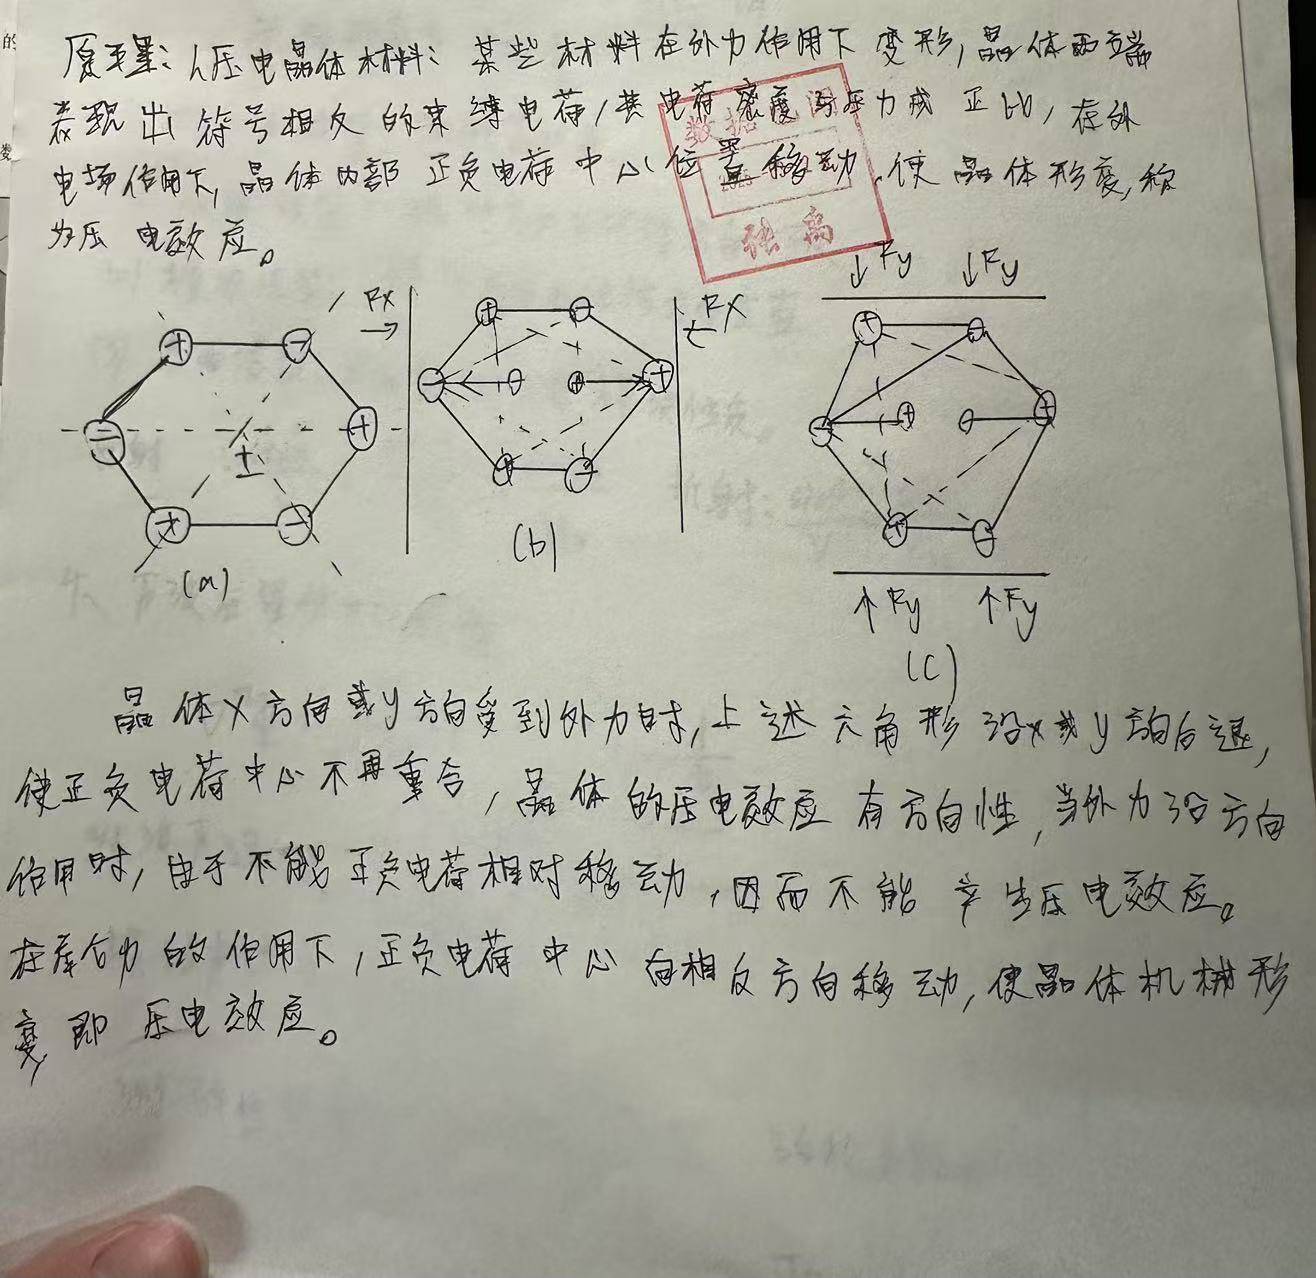 原理:1.压电晶体材料:某些材料在外力作用下变形,晶体两端
表现出符号相反的束缚电荷,其电荷密度与压力成正比,在外
电场作用下,晶体内部正负电荷中心位置移动,使晶体形变,称
为压电效应。
数据
张离
Fx
Fx
↓Fy ↓Fy
+ - - + + - ±
+ - - - + + + -
+ - - + - + + -
(a)
(b)
↑Fy ↑Fy
(c)
晶体X方向或y方向受到外力时,上述六角形沿x或y方向后退,
使正负电荷中心不再重合,晶体的压电效应有方向性,当外力沿方向
作用时,由于不能正负电荷相对移动,因而不能产生压电效应。
在库仑力的作用下,正负电荷中心向相反方向移动,使晶体机械形
变,即压电效应。